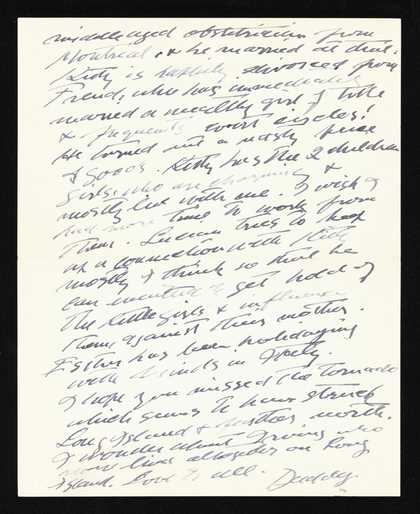 middle aged obstetrician from
Montreal, & he married at that.
Kitty is happily divorced from
Freud, who has immediately
married a wealthy girl of title
& frequents court circles!
He turned out a nasty piece
of goods. Kitty has the 2 children
girls who are charming &
mostly live with me. I wish I
had more time to work from
them. Lucian tries to keep
up a connection with Kitty
mostly I think so that he
can eventually get hold of
the little girls & influence
them against their mother.
Esther has been holidaying
with friends in Italy.
I hope you missed the tornado
which seems to have struck
Long Island & further north.
I wonder about Irving who
now lives altogether on Long
Island. Love to all. Daddy.